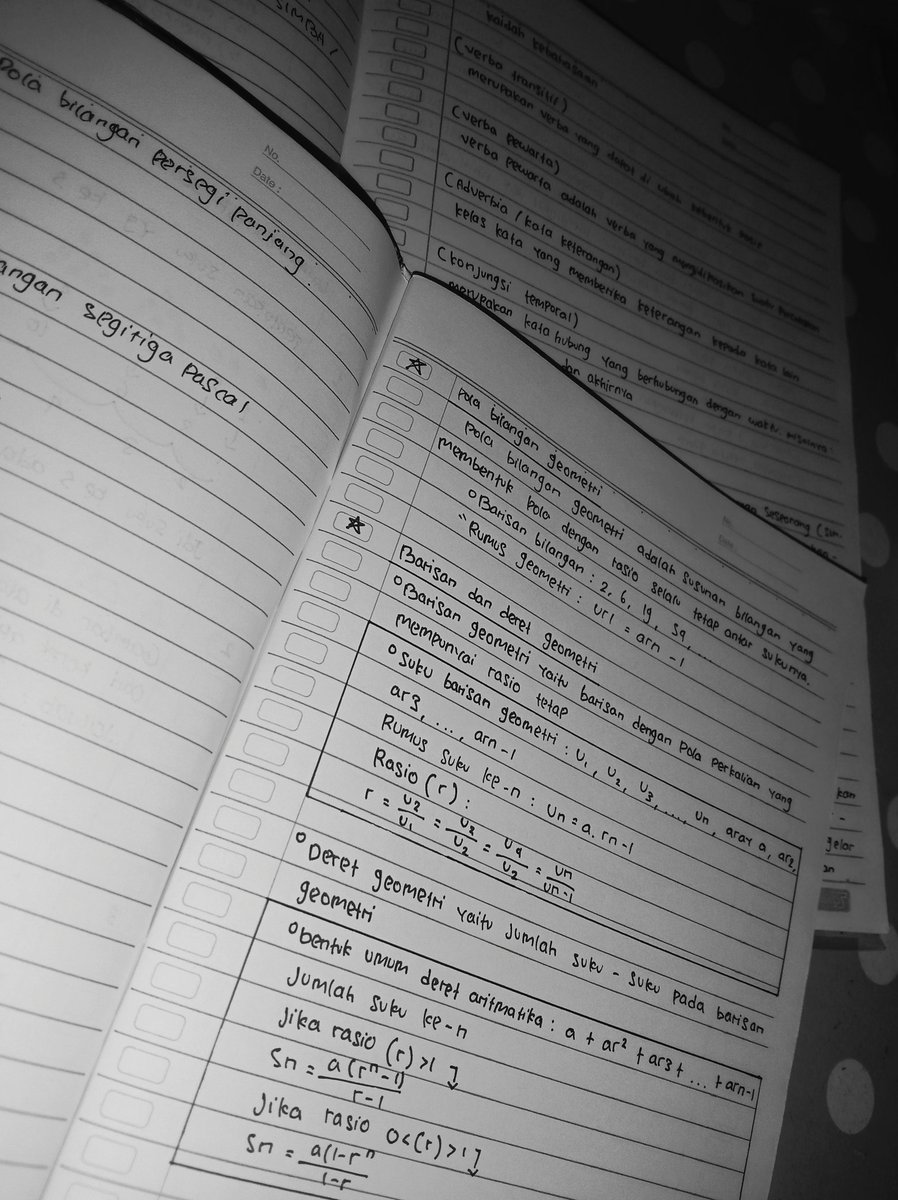 SIMBA /
Pola bilangan persegi panjang
No.
Date :
angan segitiga pascal
kaidah kebahasaan
(verba transitif)
merupakan verba yang dapat di ubah
(verba pewarta)
verba pewarta adalah verba yang
(Adverbia / kata keterangan)
kelas kata yang memberika keterangan kepada kata lain
(konjungsi temporal)
merupakan kata hubung yang berhubungan dengan waktu. misalnya :
dan akhirnya
seseorang (sim-
kan
-
gelar
an
No.
Date
☆ Pola bilangan geometri
Pola bilangan geometri adalah susunan bilangan yang
membentuk pola dengan rasio selalu tetap antar sukunya.
o Barisan bilangan : 2, 6, 19, 59, ....
" Rumus geometri : ur1 = arn - 1
☆ Barisan dan deret geometri
o Barisan geometri yaitu barisan dengan pola perkalian yang
mempunyai rasio tetap
o Suku barisan geometri : U1, U2, U3, ...., un, aray a, ar2,
ar3, ..., arn-1
Rumus suku ke-n : Un = a. rn-1
Rasio (r) :
r = U2/U1 = U3/U2 = U4/U2 = Un/Un-1
o Deret geometri yaitu jumlah suku - suku pada barisan
geometri
o bentuk umum deret aritmatika : a + ar² + ar3 + ... + arn-1
Jumlah suku ke-n
Jika rasio (r) >1 ]
Sn = a(rⁿ-1)/r-1
Jika rasio 0<(r)>1 ]
Sn = a(1-rⁿ/1-r